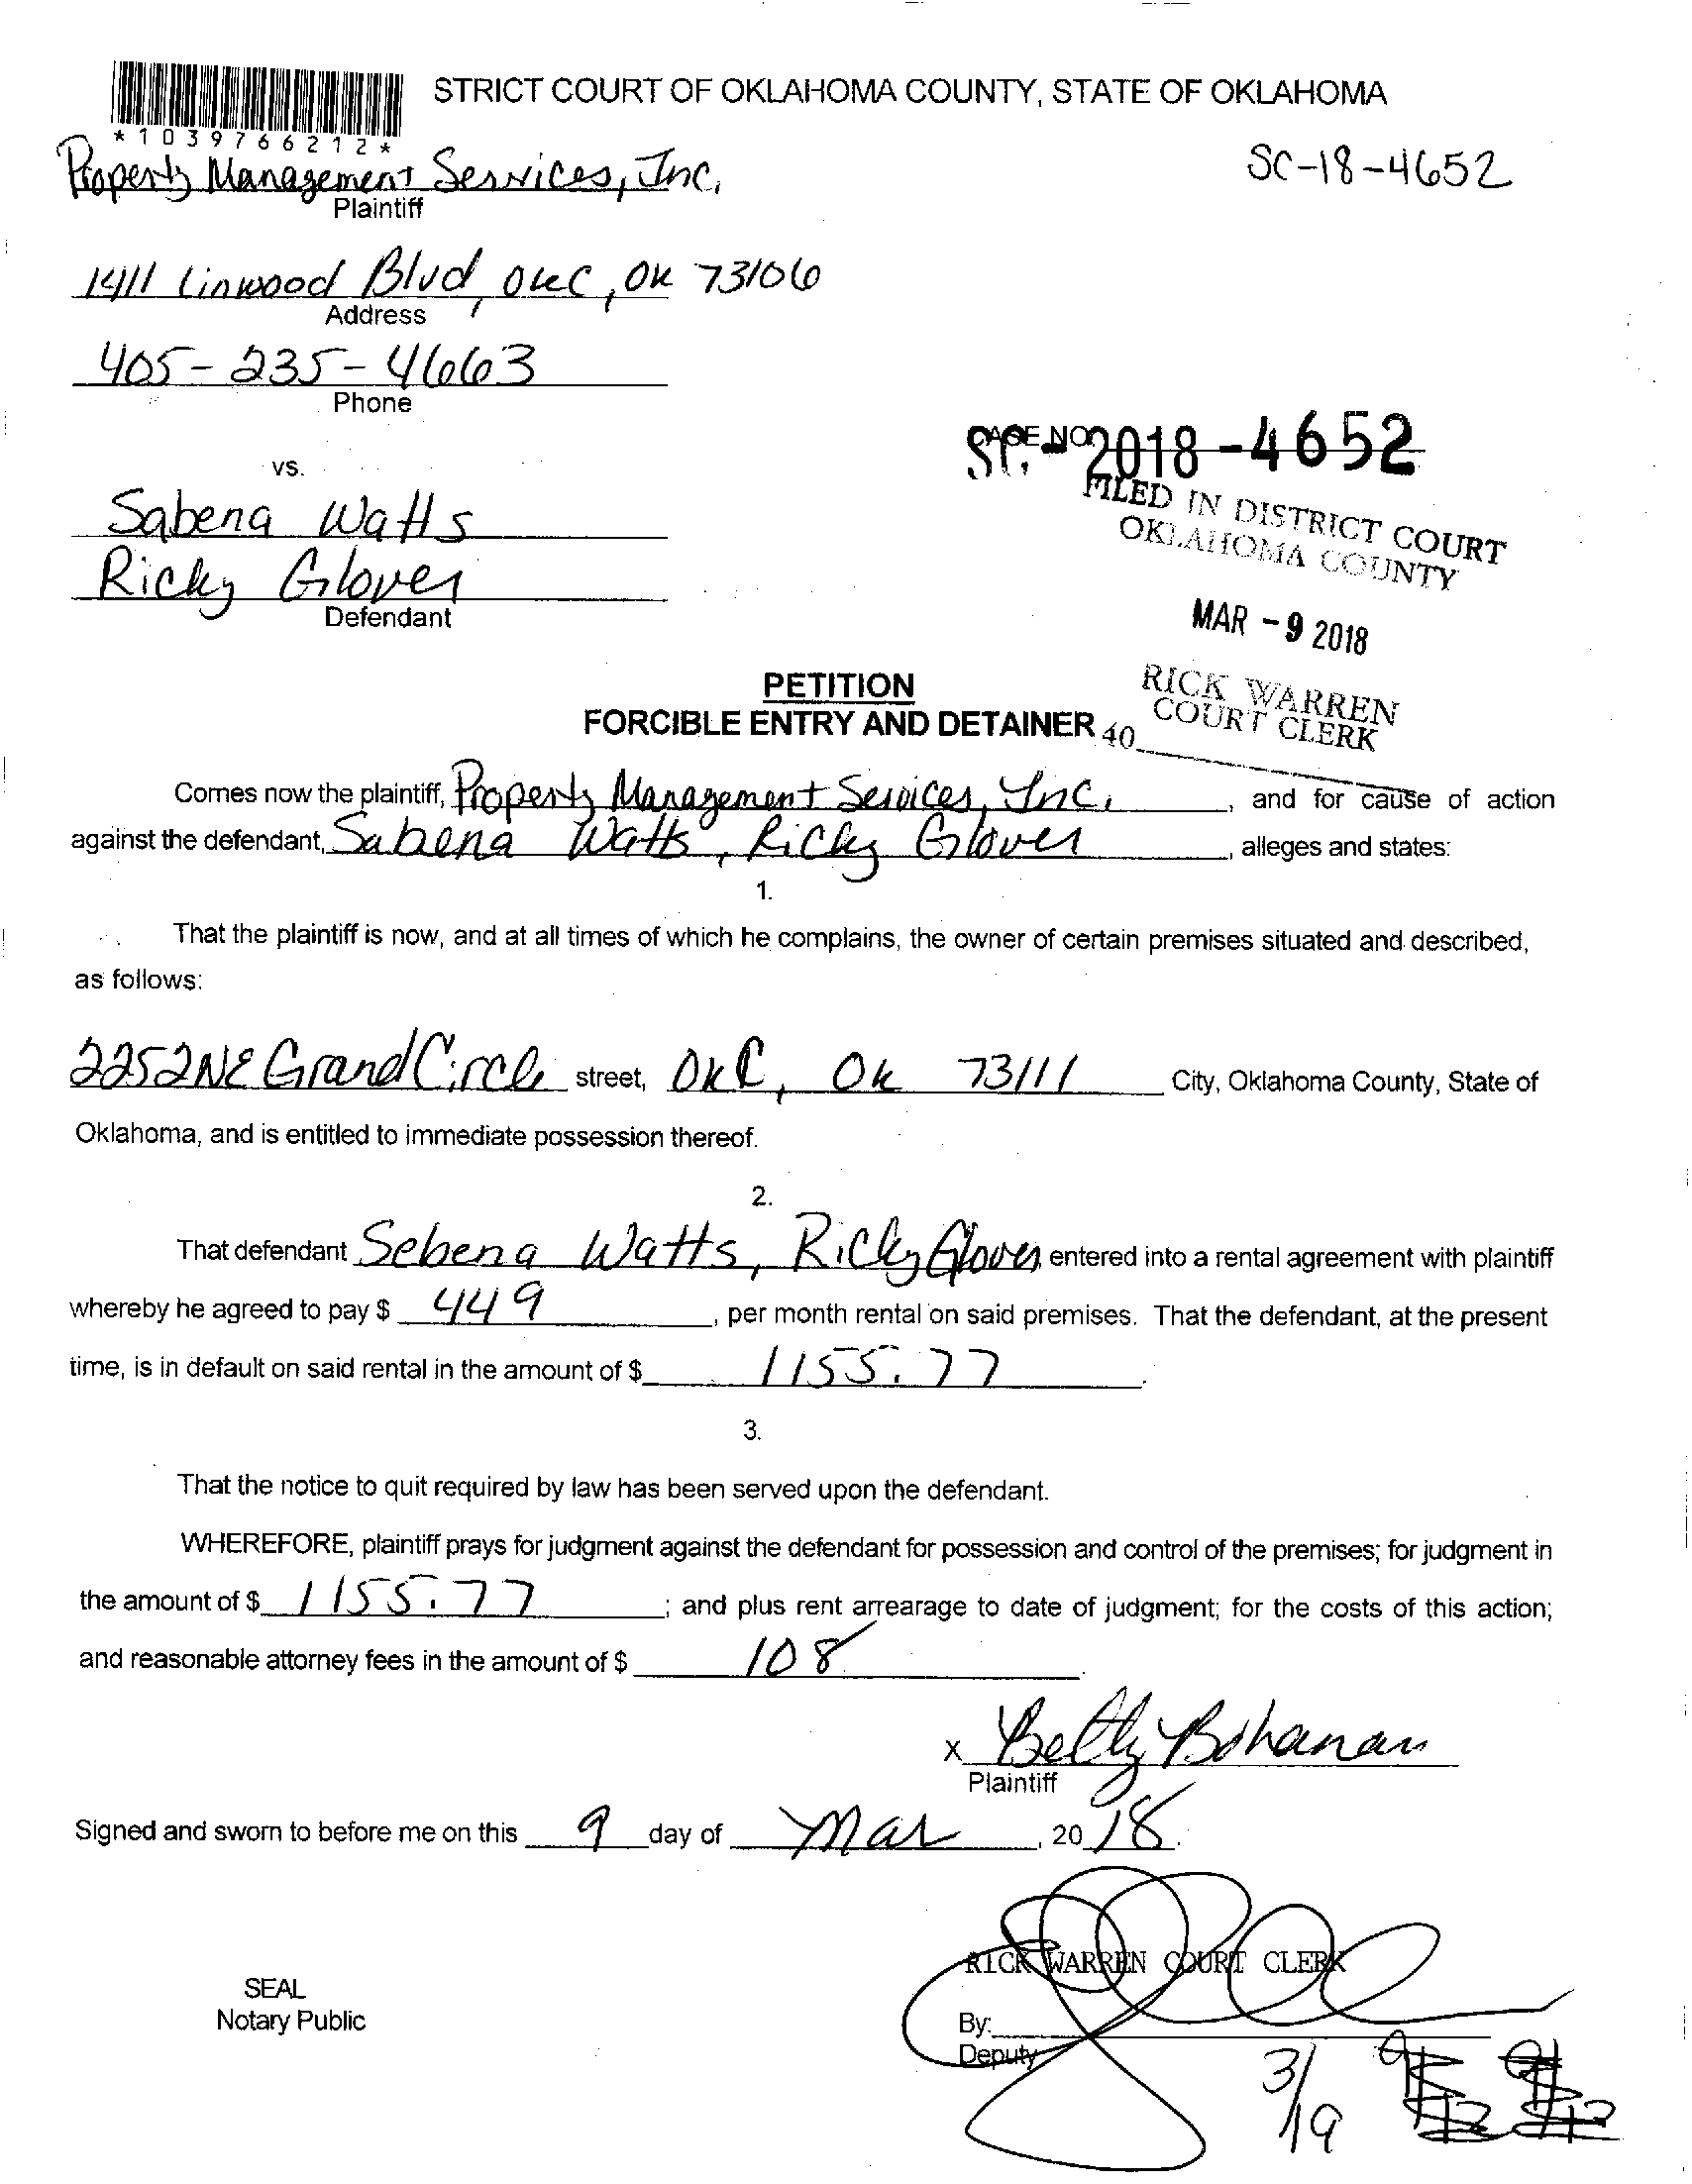 STRICT COURT OF OKLAHOMA COUNTY, STATE OF OKLAHOMA
*1039766212*
Property Management Services, Inc.
SC-18-4652
Plaintiff
1411 Linwood Blvd, OKC, OK 73106
Address
405-235-4663
Phone
CASE NO.
SC-2018-4652
vs.
FILED IN DISTRICT COURT
OKLAHOMA COUNTY
Sabena Watts
Ricky Glover
Defendant
MAR - 9 2018
RICK WARREN
COURT CLERK
40
PETITION
FORCIBLE ENTRY AND DETAINER
Comes now the plaintiff, Property Management Services, Inc. , and for cause of action
against the defendant, Sabena Watts, Ricky Glover , alleges and states:
1.
That the plaintiff is now, and at all times of which he complains, the owner of certain premises situated and described,
as follows:
2252 NE Grand Circle street, OKC, OK 73111 City, Oklahoma County, State of
Oklahoma, and is entitled to immediate possession thereof.
2.
That defendant Sebena Watts, Ricky Glover entered into a rental agreement with plaintiff
whereby he agreed to pay $ 449 , per month rental on said premises. That the defendant, at the present
time, is in default on said rental in the amount of $ 1155.77 .
3.
That the notice to quit required by law has been served upon the defendant.
WHEREFORE, plaintiff prays for judgment against the defendant for possession and control of the premises; for judgment in
the amount of $ 1155.77 ; and plus rent arrearage to date of judgment; for the costs of this action;
and reasonable attorney fees in the amount of $ 108 .
X Betty Bohanan
Plaintiff
Signed and sworn to before me on this 9 day of Mar , 20 18.
RICK WARREN COURT CLERK
SEAL
Notary Public
By:
Deputy
3/19